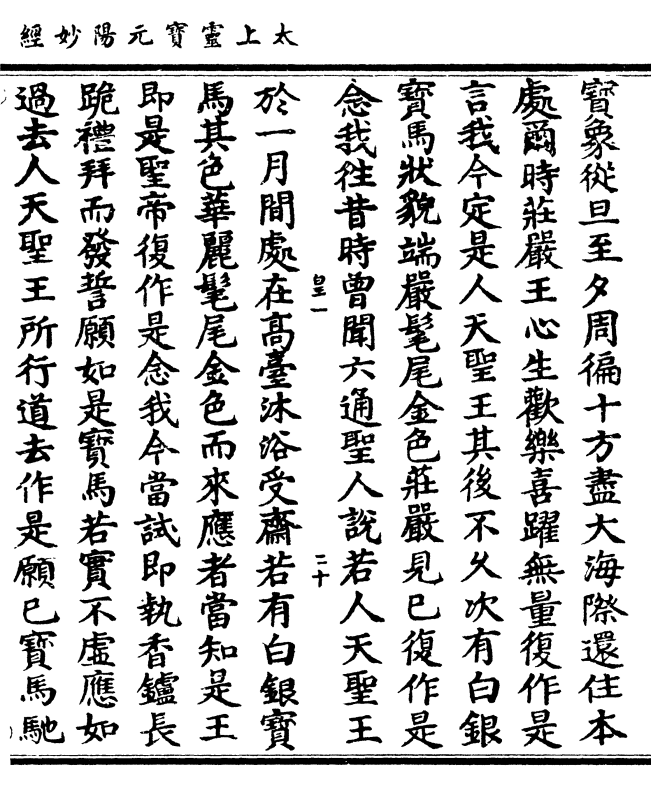 太上靈寶元陽妙經
寶象從旦至夕周徧十方盡大海際還住本
處爾時莊嚴王心生歡樂喜躍無量復作是
言我今定是人天聖王其後不久次有白銀
寶馬狀貌端嚴髦尾金色莊嚴見已復作是
念我往昔時曾聞六通聖人說若人天聖王
皇一
二十
於一月間處在高臺沐浴受齋若有白銀寶
馬其色華麗髦尾金色而來應者當知是王
即是聖帝復作是念我今當試即執香鑪長
跪禮拜而發誓願如是寶馬若實不虛應如
過去人天聖王所行道去作是願已寶馬馳